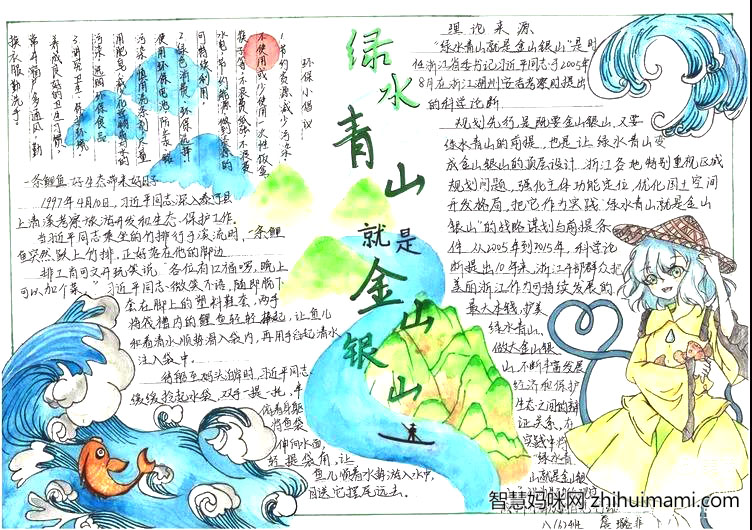 绿水青山
就是
金山银山
理论来源
"绿水青山就是金山银山"是时
任浙江省委书记习近平同志于2005年
8月在浙江湖州安吉考察时提出
的科学论断
规划先行,是既要金山银山,又要
绿水青山的前提,也是让绿水青山变
成金山银山的顶层设计。浙江各地特别重视区域
规划问题,强化主体功能定位,优化国土空间
开发格局,把它作为实践"绿水青山就是金山
银山"的战略谋划与前提条
件。从2005年到2015年,科学论
断提出10年来,浙江干部群众
美丽浙江作为可持续发展的
最大本钱,护美
绿水青山、
做大金山银
山,不断丰富发展
经济和保护
生态之间的辩
证关系,在
实践中将
"绿水青
山就是金山
环保小倡议
1.节约资源,减少污染。
不使用或少使用一次性饭盒、
筷子等,不浪费纸张,不浪费
水电,节约能源,做到资源的
可持续利用。
2.绿色消费,环保选择。
使用环保电池,防止汞镉
污染
3.讲究卫生
养成良好的卫生习惯
常开窗户多通风,勤
换衣服勤洗手。
一条鲤鱼:好生态带来好日子
1997年4月10日,习近平同志深入泰宁县
上清溪考察旅游开发和生态保护工作。
当习近平同志乘坐的竹排行于溪流时,一条鲤
鱼突然跃上竹排,正好落在他的脚边
排工商司文开玩笑说:"各位有口福喽,晚上
可以加个菜。"习近平同志微笑不语,随即脱下
套在脚上的塑料鞋套,两手
将筏槽内的鲤鱼轻轻捧起,让鱼儿
和着清水顺势滑入袋内,再用手舀起清水
注入袋中。
待船至码头泊岸时,习近平同志
缓缓拎起水袋,双手一提一托,半
俯着身躯
将鱼袋
伸向水面,
轻提袋角,让
鱼儿顺着水势游入水中,
目送它摆尾远去。
智慧妈咪网 zhihuimami.com